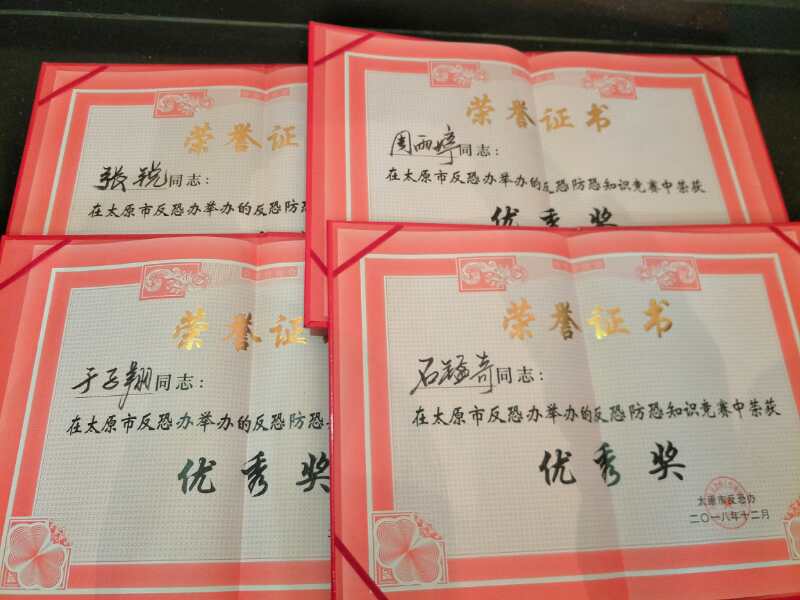 荣誉证
张锐同志：
在太原市反恐办举办的反恐防恐
荣誉证书
周丽婷同志：
在太原市反恐办举办的反恐防恐知识竞赛中荣获
优秀奖
荣誉证
于子翔同志：
在太原市反恐办举办的反恐防恐
优秀奖
荣誉证书
同志：
在太原市反恐办举办的反恐防恐知识竞赛中荣获
优秀奖
太原市反恐办
二〇一八年十二月